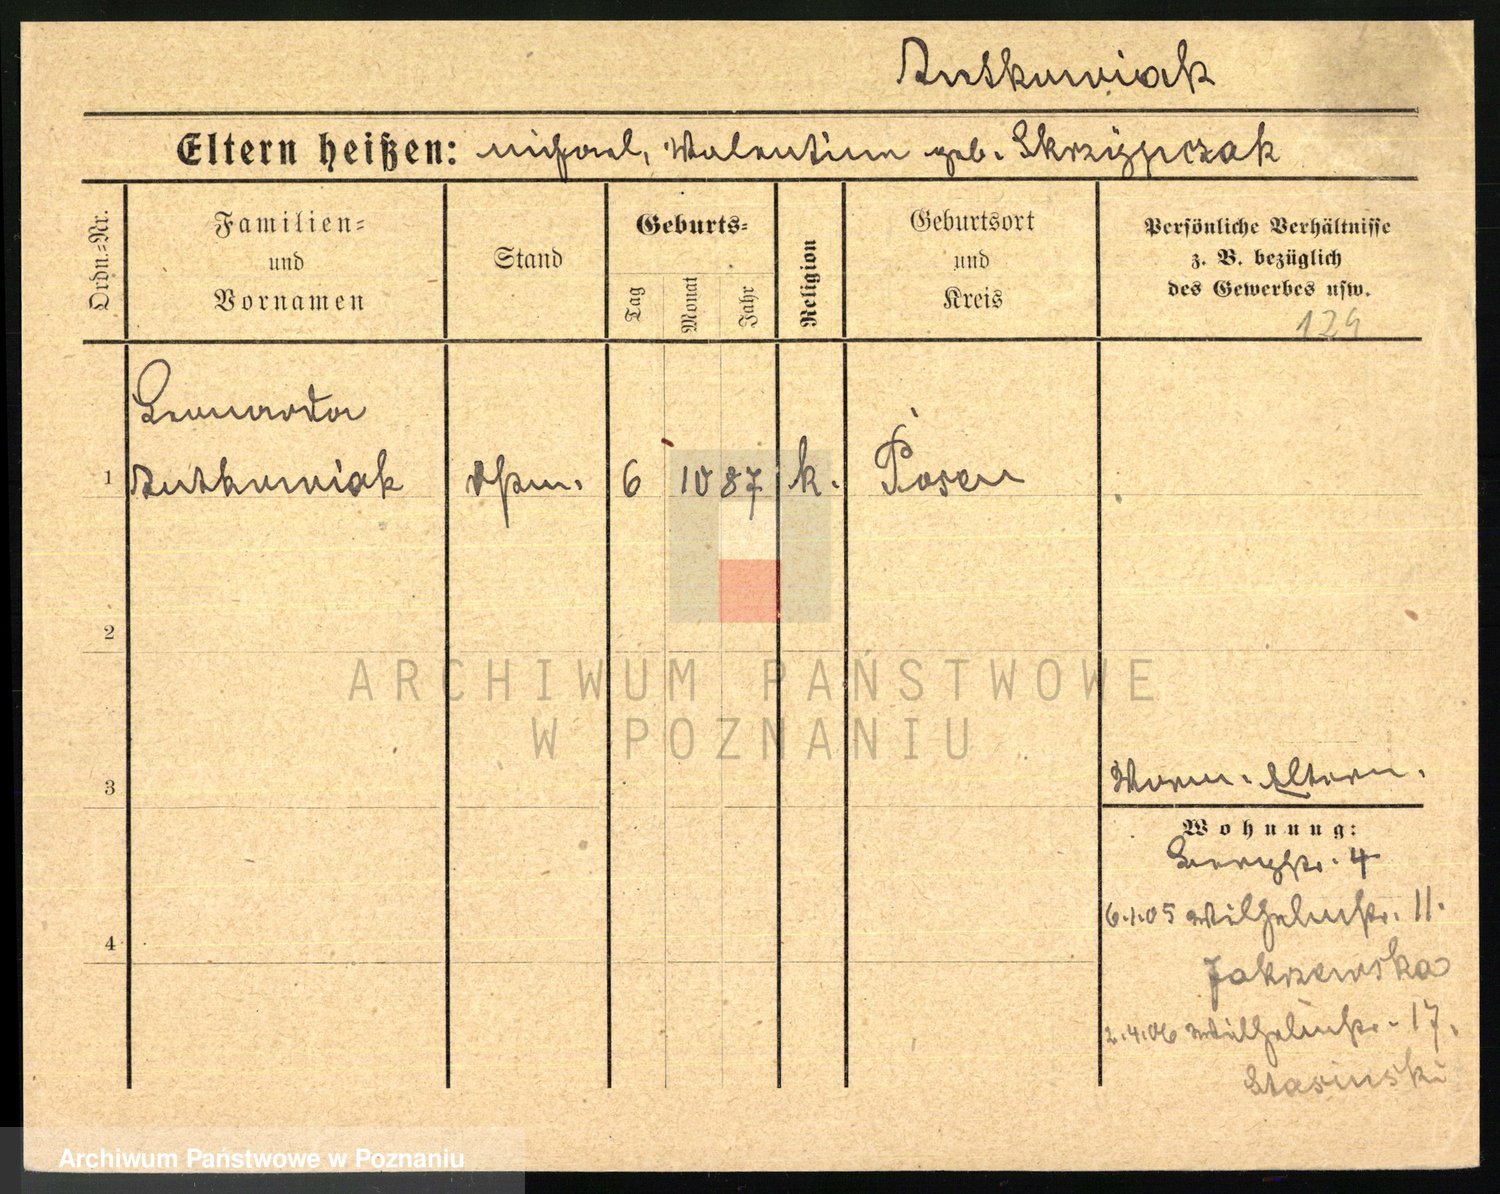 Rutkowiak
Eltern heißen: Michael, Valentine geb. Skrzypczak
Ordn.=Nr.
Familien= und Vornamen
Stand
Geburts=
Tag
Monat
Jahr
Religion
Geburtsort und Kreis
Persönliche Verhältnisse
z. B. bezüglich
des Gewerbes usw.
124
Leonarda
1 Rutkowiak 6 10 87 k. Posen
2
3
4
ARCHIWUM PAŃSTWOWE
W POZNANIU
Eltern.
Wohnung:
Bergstr. 4
6.1.05 Wilhelmstr. 11.
Zakrzewska
2.4.06 Wilhelmstr. 17.
Stasinski
Archiwum Państwowe w Poznaniu